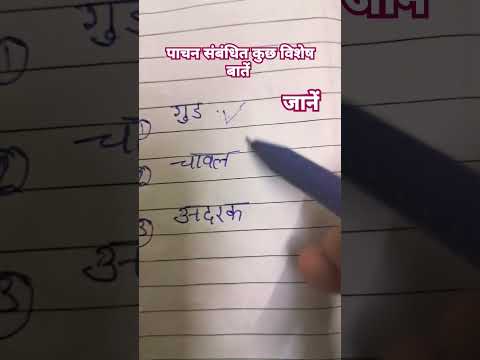 पाचन संबंधित कुछ विशेष
बातें
जानें
1 गुड
2 चावल
3 अदरक